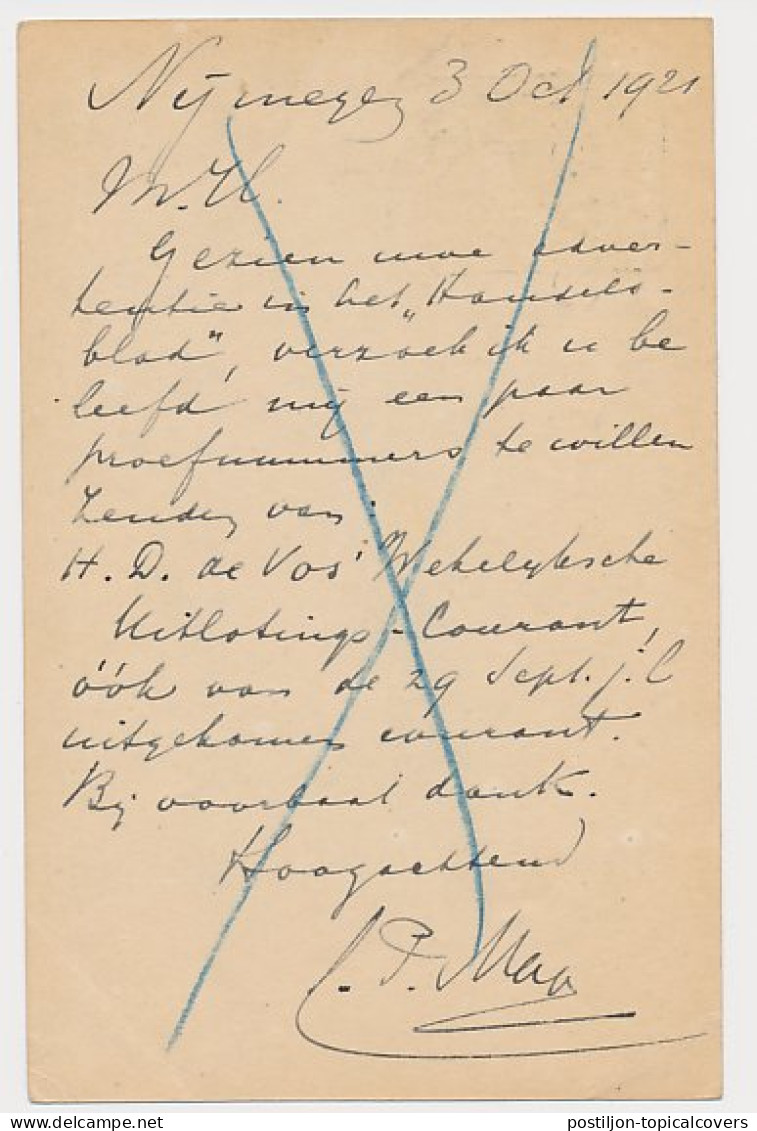 Nijmegen 3 Oct 1921
M. H.
Gezien uwe adver-
tentie in het „Handels-
blad”, verzoek ik u be
leefd mij een paar
proefnummers te willen
zenden van:
H. D. de Vos' Wekelyksche
Uitlotings-Courant,
óók van de 29 Sept. j.l
uitgekomen courant.
Bij voorbaat dank.
Hoogachtend
P.
postiljon-topicalcovers